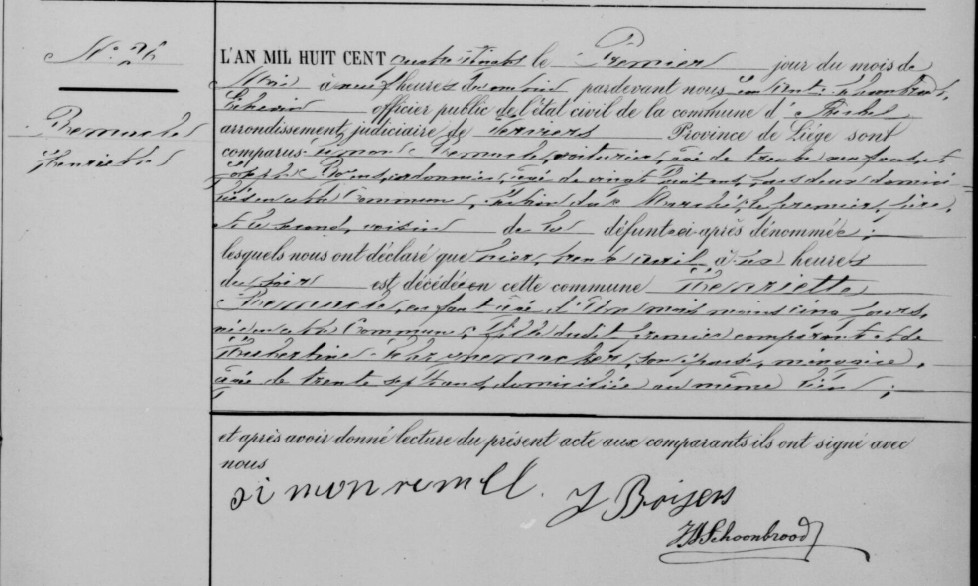 N.° 26
L'AN MIL HUIT CENT quatre vingt le Premier jour du mois de
Mai à neuf heures du matin pardevant nous
officier public de l'état civil de la commune d'
arrondissement judiciaire de Verviers Province de Liége sont
comparus Simon voiturier, âgé de trente neuf ans, et
cordonnier, âgé de vingt huit ans, tous deux domici
liés en cette Commune, le premier, père,
et le second, voisin de la défunte ci-après dénommée;
lesquels nous ont déclaré que hier, trente avril, à six heures
du soir est décédée en cette commune Henriette
enfant âgée d'un mois moins cinq jours,
née en cette Commune, fille dudit premier comparant et de
Hubertine son épouse, ménagère,
âgée de trente sept ans, domiciliée au même lieu;
et après avoir donné lecture du présent acte aux comparants ils ont signé avec
nous
simon
J Boijens
Schoonbrood